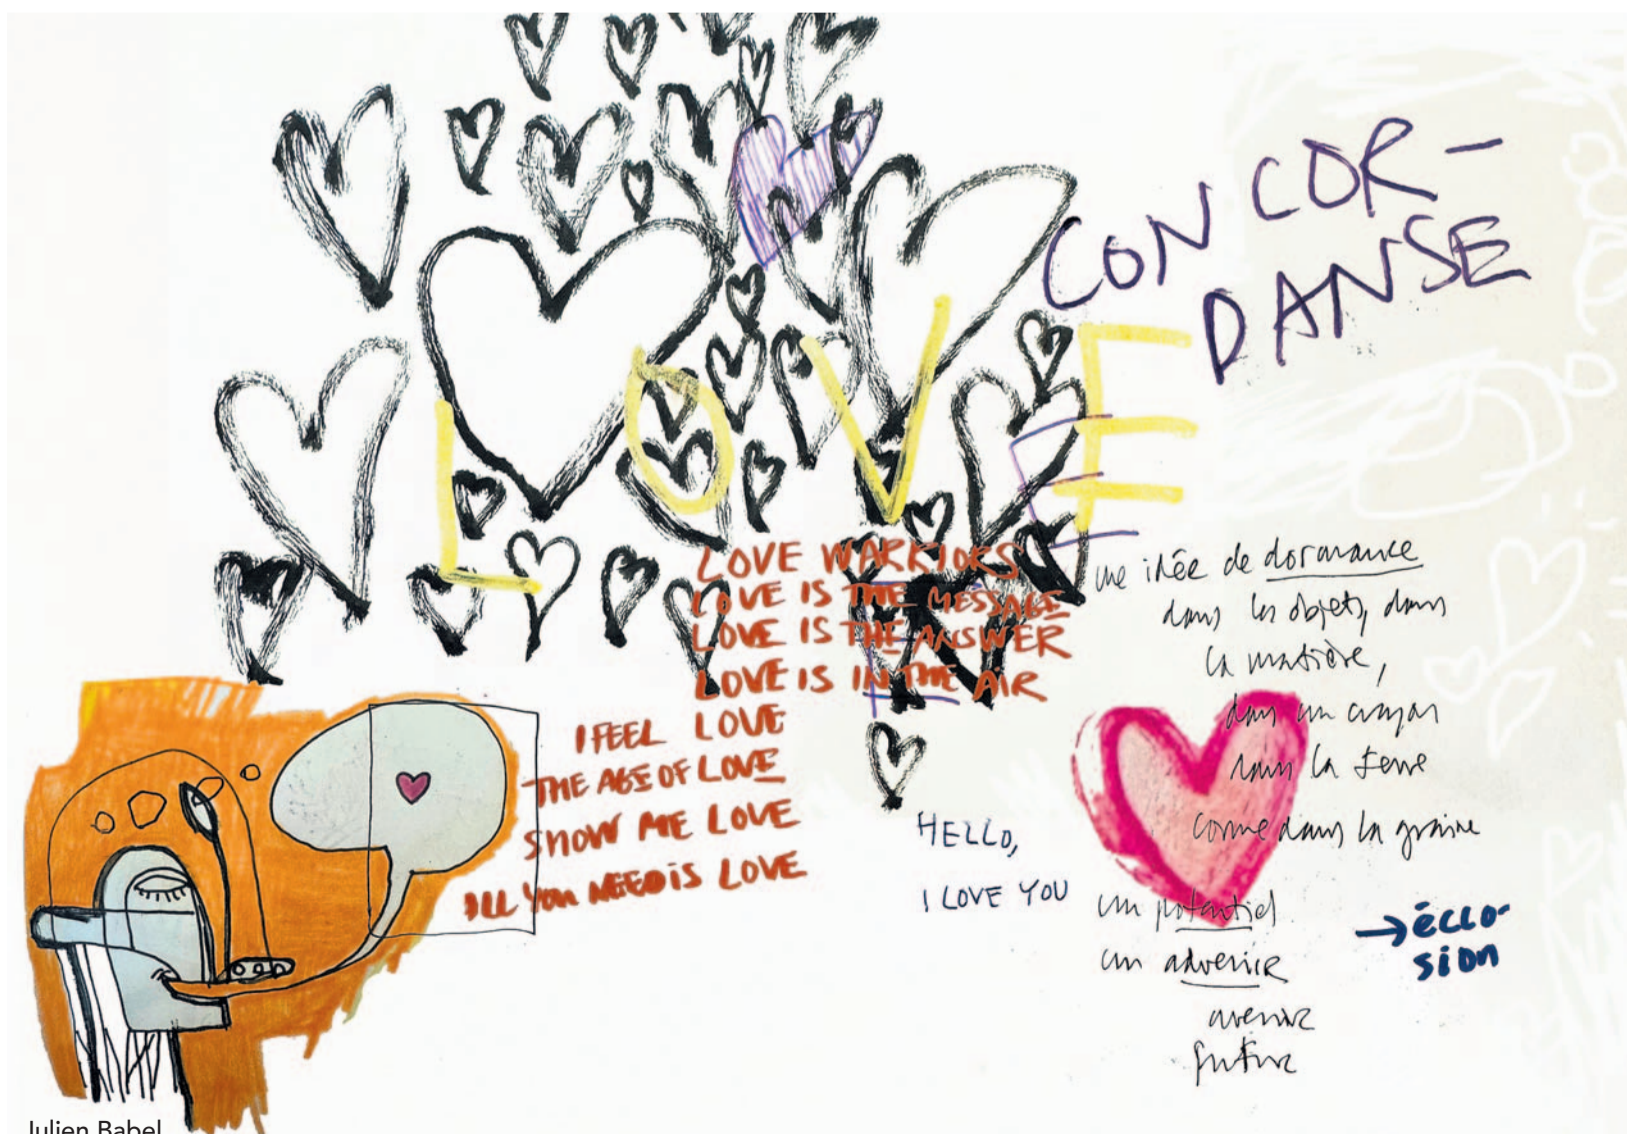 CONCOR-
DANSE
LOVE
LOVE WARRIORS
LOVE IS THE MESSAGE
LOVE IS THE ANSWER
LOVE IS IN THE AIR
I FEEL LOVE
THE AGE OF LOVE
SHOW ME LOVE
ALL YOU NEED IS LOVE
HELLO,
I LOVE YOU
une idée de dormance
dans les objets, dans
la matière,
dans un crayon
dans la terre
comme dans la graine
un potentiel
un advenir
avenir
futur
→ éclo-
sion
Julien Babel